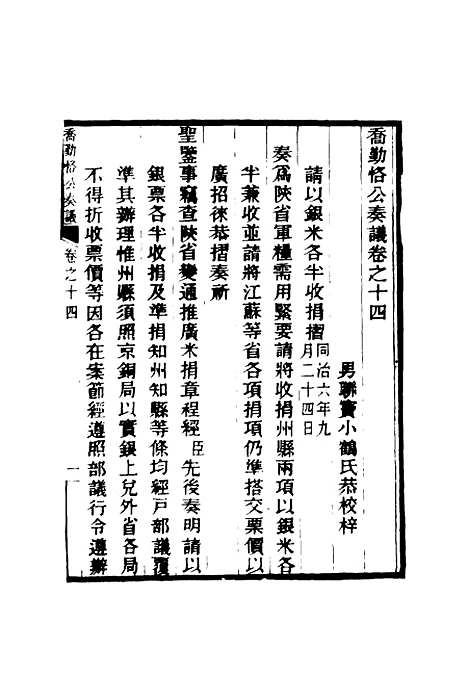 喬勤恪公奏議卷之十四
男聯寶小鶴氏恭校梓
請以銀米各半收捐摺同治六年九月二十四日
奏爲陝省軍糧需用緊要請將收捐州縣兩項以銀米各
半兼收並請將江蘇等省各項捐項仍準搭交票價以
廣招徠恭摺奏祈
聖鑒事竊查陝省變通推廣米捐章程經臣先後奏明請以
銀票各半收捐及準捐知州知縣等條均經戶部議覆
準其辦理惟州縣須照京銅局以實銀上兌外省各局
不得折收票價等因各在案節經遵照部議行令遵辦
喬勤恪公奏議
卷之十四
一